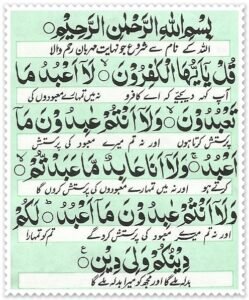 بِسْمِ اللهِ الرَّحْمٰنِ الرَّحِيْمِ ○
اللہ کے نام سے شروع جو نہایت مہربان رحم والا
قُلْ يٰۤاَيُّهَا الْكٰفِرُوْنَ ۙ لَاۤ اَعْبُدُ مَا
آپ کہہ دیجئے کہ اے کافرو نہ میں تمہارے معبودوں کی
تَعْبُدُوْنَ ۙ وَلَاۤ اَنْتُمْ عٰبِدُوْنَ مَاۤ
پرستش کرتا ہوں اور نہ تم میرے معبود کی پرستش
اَعْبُدُ ۚ وَلَاۤ اَنَا عَابِدٌ مَّا عَبَدْتُّمْ ۙ
کرتے ہو اور نہ میں تمہارے معبودوں کی پرستش کروں گا
وَلَاۤ اَنْتُمْ عٰبِدُوْنَ مَاۤ اَعْبُدُ ؕ لَكُمْ
اور نہ تم میرے معبود کی پرستش کرو گے تم کو تمہارا
دِيْنُكُمْ وَلِيَ دِيْنِ ○ ع
بدلہ ملے گا اور مجھ کو میرا بدلہ ملے گا